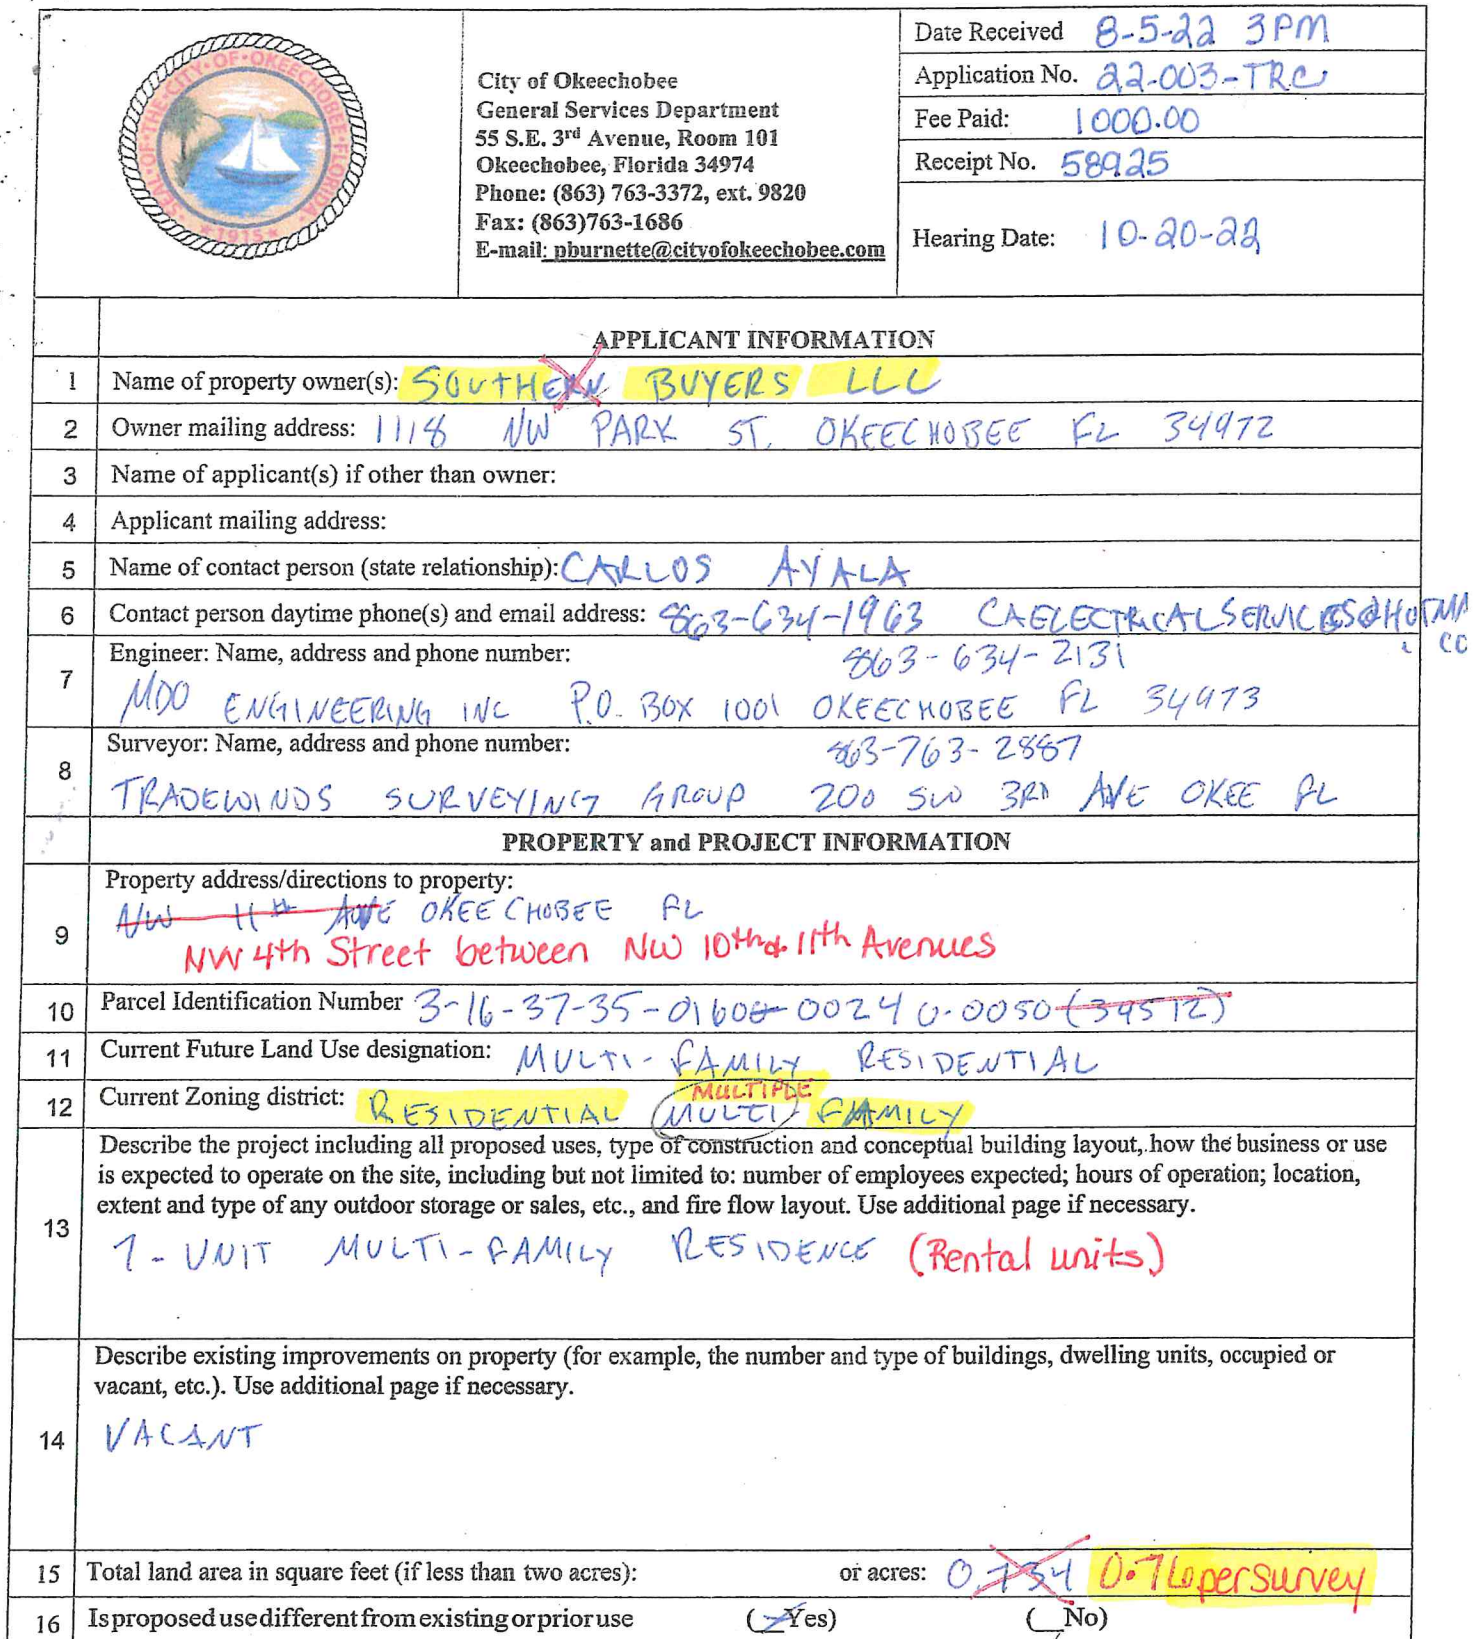 SEAL OF THE CITY OF OKEECHOBEE, FLORIDA
★ 1915 ★
City of Okeechobee
General Services Department
55 S.E. 3rd Avenue, Room 101
Okeechobee, Florida 34974
Phone: (863) 763-3372, ext. 9820
Fax: (863)763-1686
E-mail: pburnette@cityofokeechobee.com
Date Received 8-5-22 3PM
Application No. 22-003-TRC
Fee Paid: 1000.00
Receipt No. 58925
Hearing Date: 10-20-22
APPLICANT INFORMATION
1 Name of property owner(s): SOUTHERN BUYERS LLC
2 Owner mailing address: 1118 NW PARK ST. OKEECHOBEE FL 34972
3 Name of applicant(s) if other than owner:
4 Applicant mailing address:
5 Name of contact person (state relationship): CARLOS AYALA
6 Contact person daytime phone(s) and email address: 863-634-1963 CAELECTRICALSERVICES@HOTMA
. CO
7 Engineer: Name, address and phone number: 863-634-2131
MDO ENGINEERING INC P.O. BOX 1001 OKEECHOBEE FL 34973
8 Surveyor: Name, address and phone number: 863-763-2887
TRADEWINDS SURVEYING GROUP 200 SW 3RD AVE OKEE FL
PROPERTY and PROJECT INFORMATION
9 Property address/directions to property:
NW 11th AVE OKEECHOBEE FL
NW 4th Street between NW 10th & 11th Avenues
10 Parcel Identification Number 3-16-37-35-0160-00240-0050 (39512)
11 Current Future Land Use designation: MULTI-FAMILY RESIDENTIAL
MULTIPLE
12 Current Zoning district: RESIDENTIAL MULTI-FAMILY
13 Describe the project including all proposed uses, type of construction and conceptual building layout, how the business or use
is expected to operate on the site, including but not limited to: number of employees expected; hours of operation; location,
extent and type of any outdoor storage or sales, etc., and fire flow layout. Use additional page if necessary.
7-UNIT MULTI-FAMILY RESIDENCE (Rental units)
14 Describe existing improvements on property (for example, the number and type of buildings, dwelling units, occupied or
vacant, etc.). Use additional page if necessary.
VACANT
15 Total land area in square feet (if less than two acres): or acres: 0.734 0.76 per survey
16 Is proposed use different from existing or prior use (__Yes) (__No)